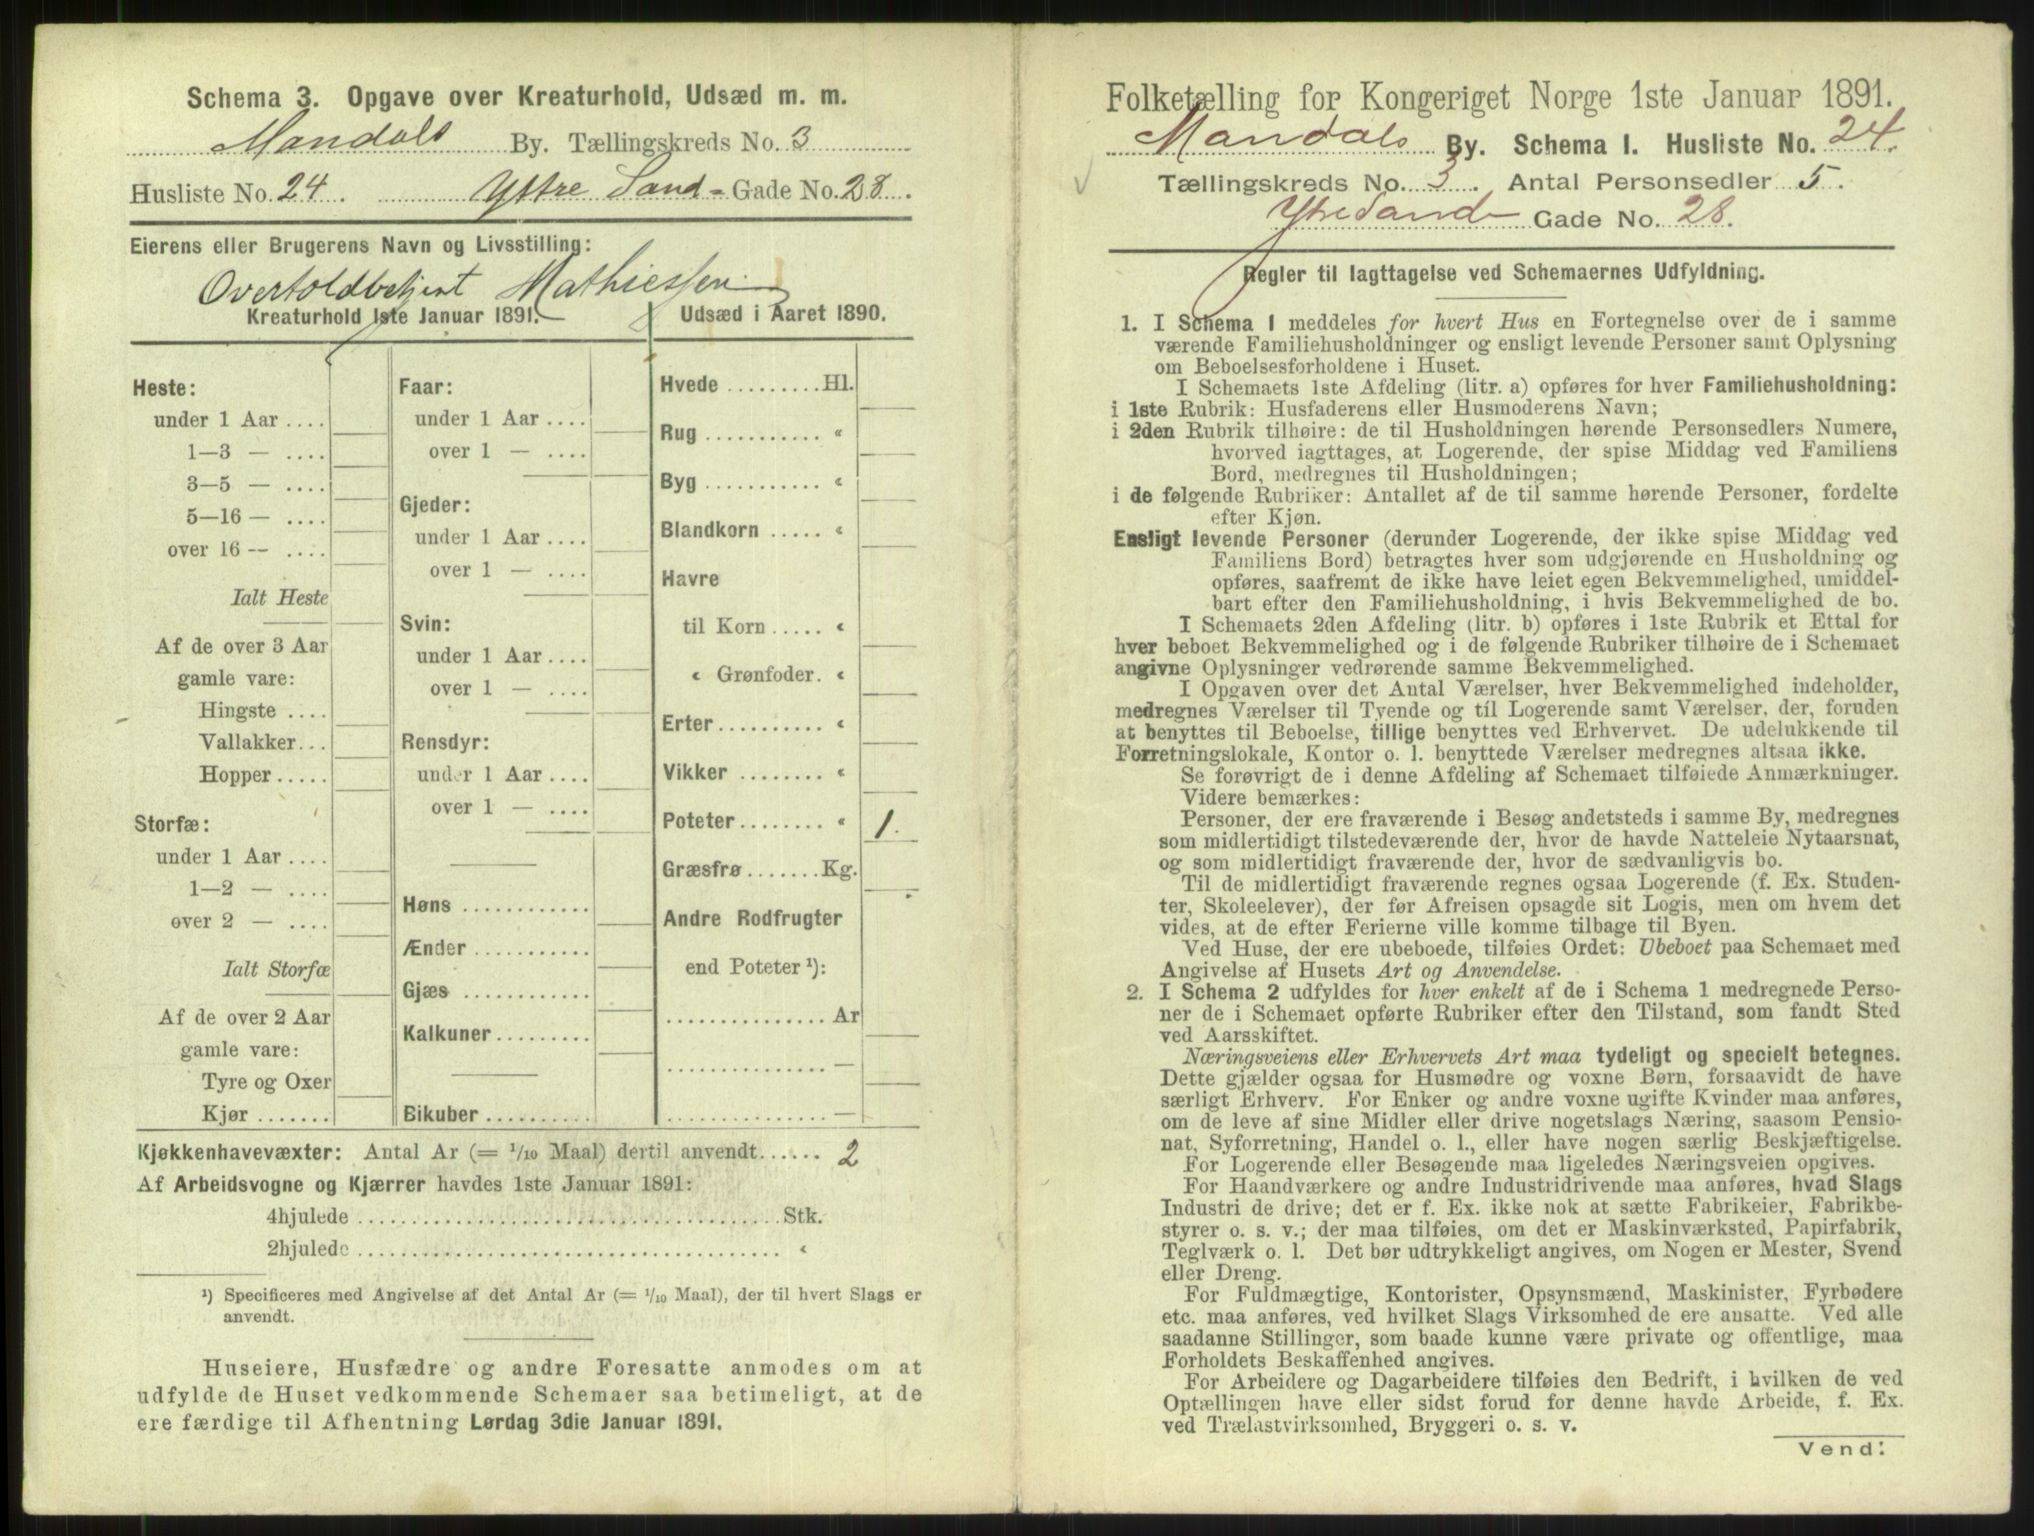 Schema 3. Opgave over Kreaturhold, Udsæd m. m.
Mandals By. Tællingskreds No. 3
Husliste No. 24. Yttre Sand- Gade No. 28.
Eierens eller Brugerens Navn og Livsstilling:
Overtoldbetjent Mathiessen
Kreaturhold 1ste Januar 1891.
Heste:
under 1 Aar ....
1—3 — ....
3—5 — ....
5—16 — ....
over 16 — ....
Ialt Heste
Af de over 3 Aar
gamle vare:
Hingste ....
Vallakker...
Hopper.....
Storfæ:
under 1 Aar ....
1—2 — ....
over 2 — ....
Ialt Storfæ
Af de over 2 Aar
gamle vare:
Tyre og Oxer
Kjør .......
Faar:
under 1 Aar ....
over 1 — ....
Gjeder:
under 1 Aar ....
over 1 — ....
Svin:
under 1 Aar ....
over 1 — ....
Rensdyr:
under 1 Aar ....
over 1 — ....
Høns ............
Ænder ...........
Gjæs ............
Kalkuner.........
Bikuber..........
Udsæd i Aaret 1890.
Hvede .........Hl.
Rug ........... «
Byg ........... «
Blandkorn ..... «
Havre
til Korn ..... «
« Grønfoder. «
Erter.......... «
Vikker ........ «
Poteter........ « 1.
Græsfrø.......Kg.
Andre Rodfrugter
end Poteter ¹):
............... Ar
............... —
............... —
Kjøkkenhavevæxter: Antal Ar (= 1/10 Maal) dertil anvendt...... 2
Af Arbeidsvogne og Kjærrer havdes 1ste Januar 1891:
4hjulede ........................................Stk.
2hjulede ........................................ «
¹) Specificeres med Angivelse af det Antal Ar (= 1/10 Maal), der til hvert Slags er
anvendt.
Huseiere, Husfædre og andre Foresatte anmodes om at
udfylde de Huset vedkommende Schemaer saa betimeligt, at de
ere færdige til Afhentning Lørdag 3die Januar 1891.
Folketælling for Kongeriget Norge 1ste Januar 1891.
Mandals By. Schema I. Husliste No. 24.
Tællingskreds No. 3. Antal Personsedler 5.
Ytre Sand Gade No. 28.
Regler til Iagttagelse ved Schemaernes Udfyldning.
1. I Schema 1 meddeles for hvert Hus en Fortegnelse over de i samme
værende Familiehusholdninger og ensligt levende Personer samt Oplysning
om Beboelsesforholdene i Huset.
I Schemaets 1ste Afdeling (litr. a) opføres for hver Familiehusholdning:
i 1ste Rubrik: Husfaderens eller Husmoderens Navn;
i 2den Rubrik tilhøire: de til Husholdningen hørende Personsedlers Numere,
hvorved iagttages, at Logerende, der spise Middag ved Familiens
Bord, medregnes til Husholdningen;
i de følgende Rubriker: Antallet af de til samme hørende Personer, fordelte
efter Kjøn.
Ensligt levende Personer (derunder Logerende, der ikke spise Middag ved
Familiens Bord) betragtes hver som udgjørende en Husholdning og
opføres, saafremt de ikke have leiet egen Bekvemmelighed, umiddel-
bart efter den Familiehusholdning, i hvis Bekvemmelighed de bo.
I Schemaets 2den Afdeling (litr. b) opføres i 1ste Rubrik et Ettal for
hver beboet Bekvemmelighed og i de følgende Rubriker tilhøire de i Schemaet
angivne Oplysninger vedrørende samme Bekvemmelighed.
I Opgaven over det Antal Værelser, hver Bekvemmelighed indeholder,
medregnes Værelser til Tyende og til Logerende samt Værelser, der, foruden
at benyttes til Beboelse, tillige benyttes ved Erhvervet. De udelukkende til
Forretningslokale, Kontor o. l. benyttede Værelser medregnes altsaa ikke.
Se forøvrigt de i denne Afdeling af Schemaet tilføiede Anmærkninger.
Videre bemærkes:
Personer, der ere fraværende i Besøg andetsteds i samme By, medregnes
som midlertidigt tilstedeværende der, hvor de havde Natteleie Nytaarsnat,
og som midlertidigt fraværende der, hvor de sædvanligvis bo.
Til de midlertidigt fraværende regnes ogsaa Logerende (f. Ex. Studen-
ter, Skoleelever), der før Afreisen opsagde sit Logis, men om hvem det
vides, at de efter Ferierne ville komme tilbage til Byen.
Ved Huse, der ere ubeboede, tilføies Ordet: Ubeboet paa Schemaet med
Angivelse af Husets Art og Anvendelse.
2. I Schema 2 udfyldes for hver enkelt af de i Schema 1 medregnede Perso-
ner de i Schemaet opførte Rubriker efter den Tilstand, som fandt Sted
ved Aarsskiftet.
Næringsveiens eller Erhvervets Art maa tydeligt og specielt betegnes.
Dette gjælder ogsaa for Husmødre og voxne Børn, forsaavidt de have
særligt Erhverv. For Enker og andre voxne ugifte Kvinder maa anføres,
om de leve af sine Midler eller drive nogetslags Næring, saasom Pensio-
nat, Syforretning, Handel o. l., eller have nogen særlig Beskjæftigelse.
For Logerende eller Besøgende maa ligeledes Næringsveien opgives.
For Haandværkere og andre Industridrivende maa anføres, hvad Slags
Industri de drive; det er f. Ex. ikke nok at sætte Fabrikeier, Fabrikbe-
styrer o. s. v.; der maa tilføies, om det er Maskinværksted, Papirfabrik,
Teglværk o. l. Det bør udtrykkeligt angives, om Nogen er Mester, Svend
eller Dreng.
For Fuldmægtige, Kontorister, Opsynsmænd, Maskinister, Fyrbødere
etc. maa anføres, ved hvilket Slags Virksomhed de ere ansatte. Ved alle
saadanne Stillinger, som baade kunne være private og offentlige, maa
Forholdets Beskaffenhed angives.
For Arbeidere og Dagarbeidere tilføies den Bedrift, i hvilken de ved
Optællingen have eller sidst forud for denne havde Arbeide, f. Ex.
ved Trælastvirksomhed, Bryggeri o. s. v.
Vend: